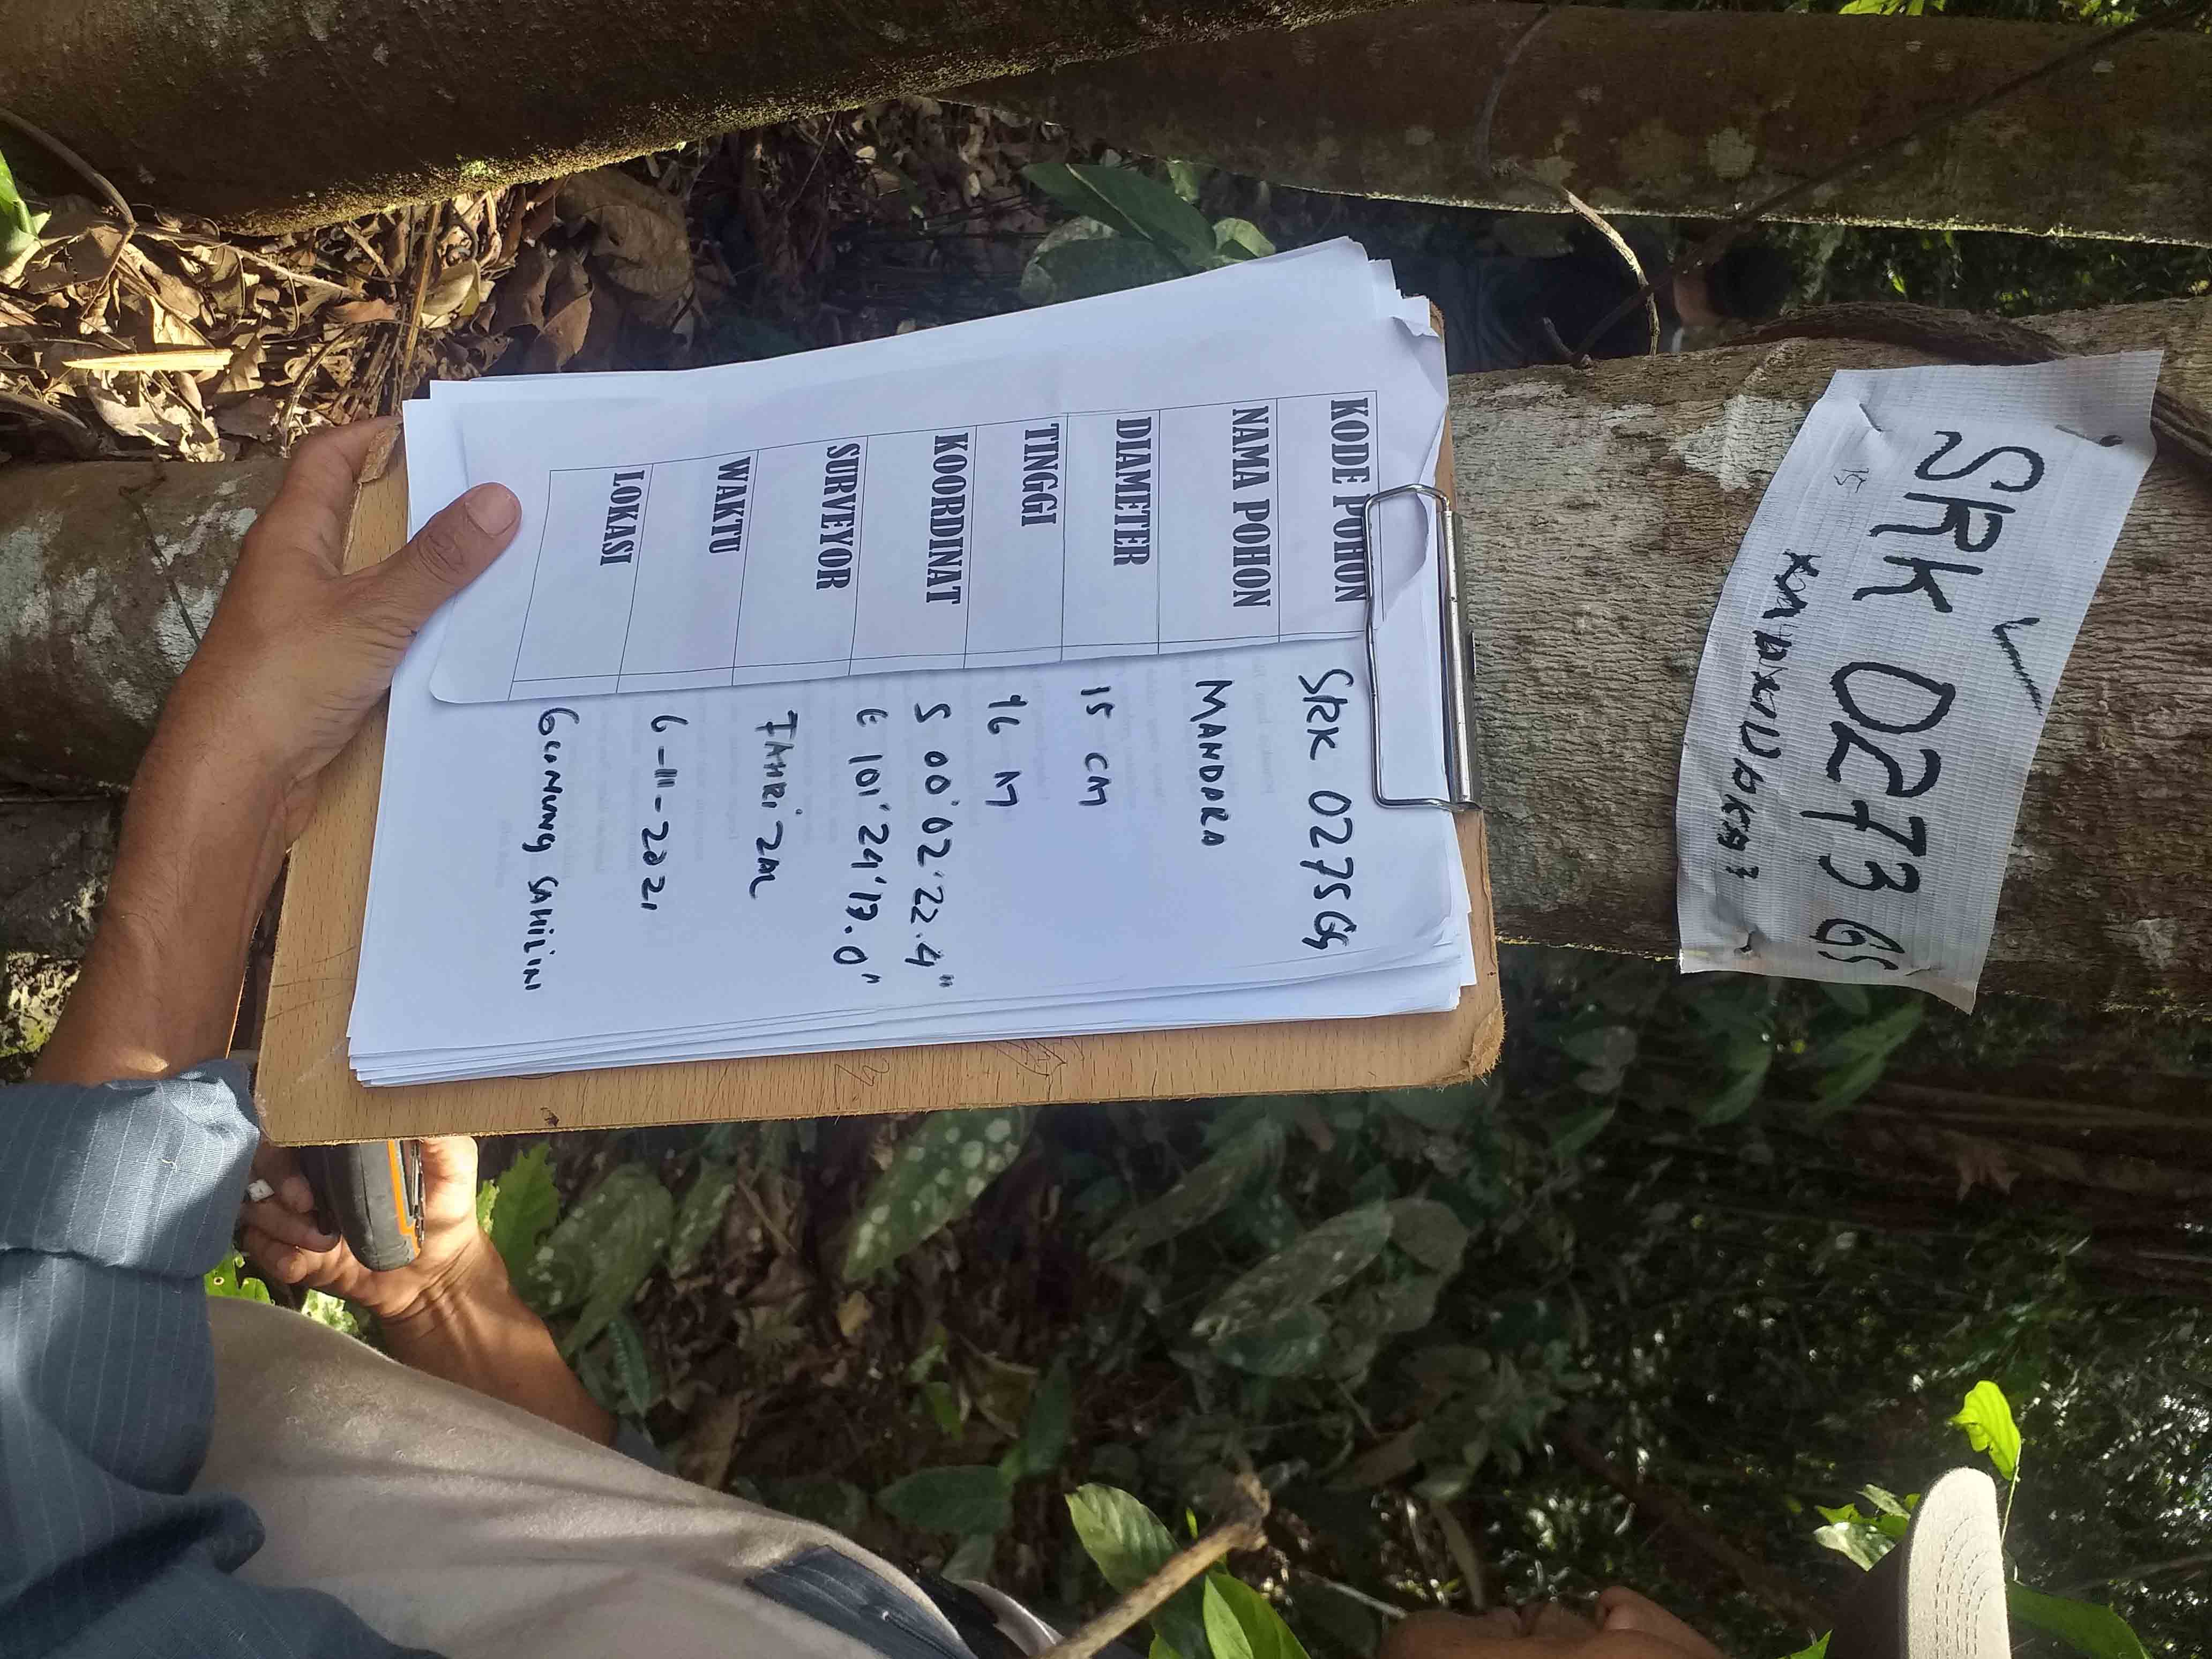 SRK 0273 GS
15
KODE POHON
SRK 0275 GS
NAMA POHON
MANDARA
DIAMETER
15 CM
TINGGI
16 M
KOORDINAT
S 00°02'22.4"
E 101°24'17.0"
SURVEYOR
FAHRIZAL
WAKTU
6-11-2021
LOKASI
GUNUNG SAHILIN